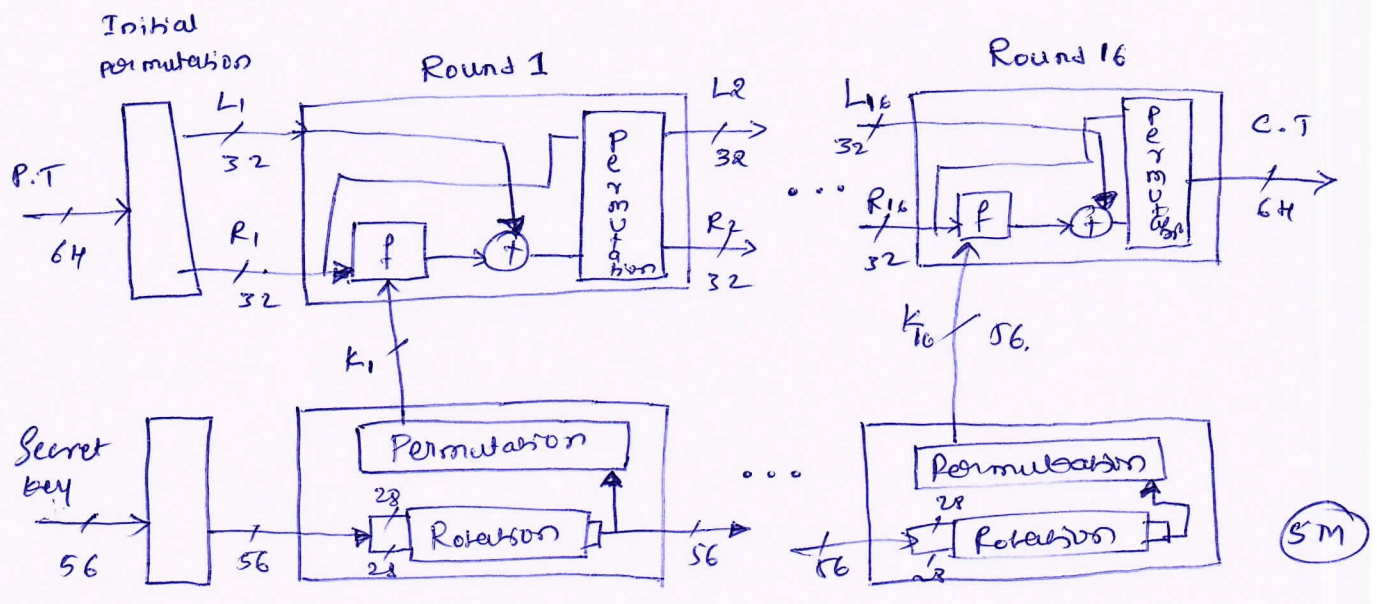 Initial
permutation
Round 1
Round 16
L1
32
L2
32
L16
32
C.T
64
P.T
64
R1
32
f
+
Permutation
R2
32
R16
32
f
+
Permutation
K1
K16
56.
Secret
key
56
56
Permutation
28
Rotation
28
56
...
...
56
Permutation
28
Rotation
28
5M